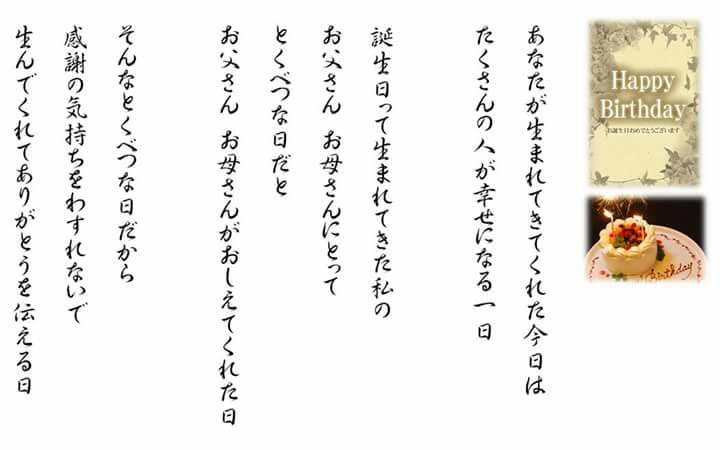 Happy
Birthday
お誕生日おめでとうございます
Birthday
あなたが生まれてきてくれた今日は
たくさんの人が幸せになる一日
誕生日って生まれてきた私の
お父さん お母さんにとって
とくべつな日だと
お父さん お母さんがおしえてくれた日
そんなとくべつな日だから
感謝の気持ちをわすれないで
生んでくれてありがとうを伝える日